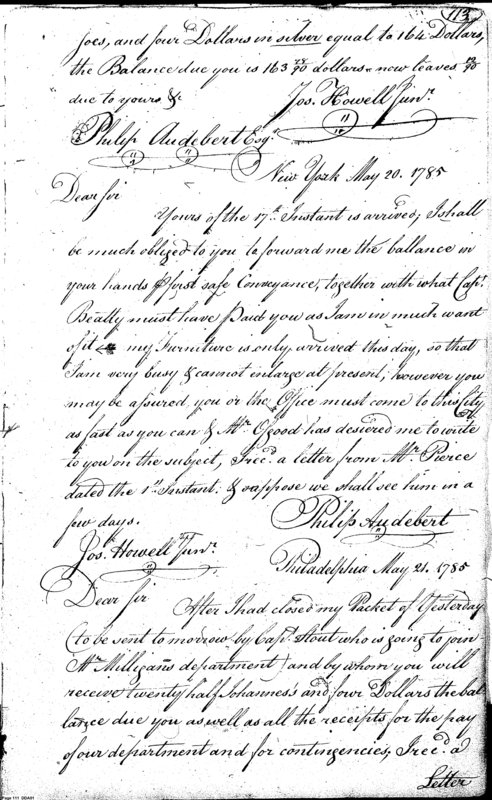 113
Joes, and four Dollars in silver equal to 164 Dollars,
the Balance due you is 163 78/90 dollars - now leaves 12/90
due to yours &c
Jos. Howell Junr.
Philip Audebert Esqr.
New York May 20. 1785
Dear Sir
Yours of the 17th. Instant is arrived, I shall
be much obliged to you to forward me the ballance in
your hands first safe Conveyance, together with what Capt.
Beatty must have paid you as I am in much want
of it my Furniture is only arrived this day, so that
I am very busy & cannot enlarge at present; however you
may be assured, you or the Office must come to this City
as fast as you can & Mr. Osgood has desiered me to write
to you on the subject, I rec'd. a letter from Mr. Pierce
dated the 1st. Instant. & suppose we shall see him in a
few days.
Philip Audebert
Jos. Howell Junr.
Philadelphia May 21. 1785
Dear Sir
After I had closed my Packet of Yesterday
(to be sent to morrow by Capt. Stout who is going to join
Mr. Milligan's department) and by whom you will
receive twenty half Johannes's and four Dollars the bal-
lance due you as well as all the receipts for the pay
of our department and for contingencies, I rec'd. a
Letter
Page 111